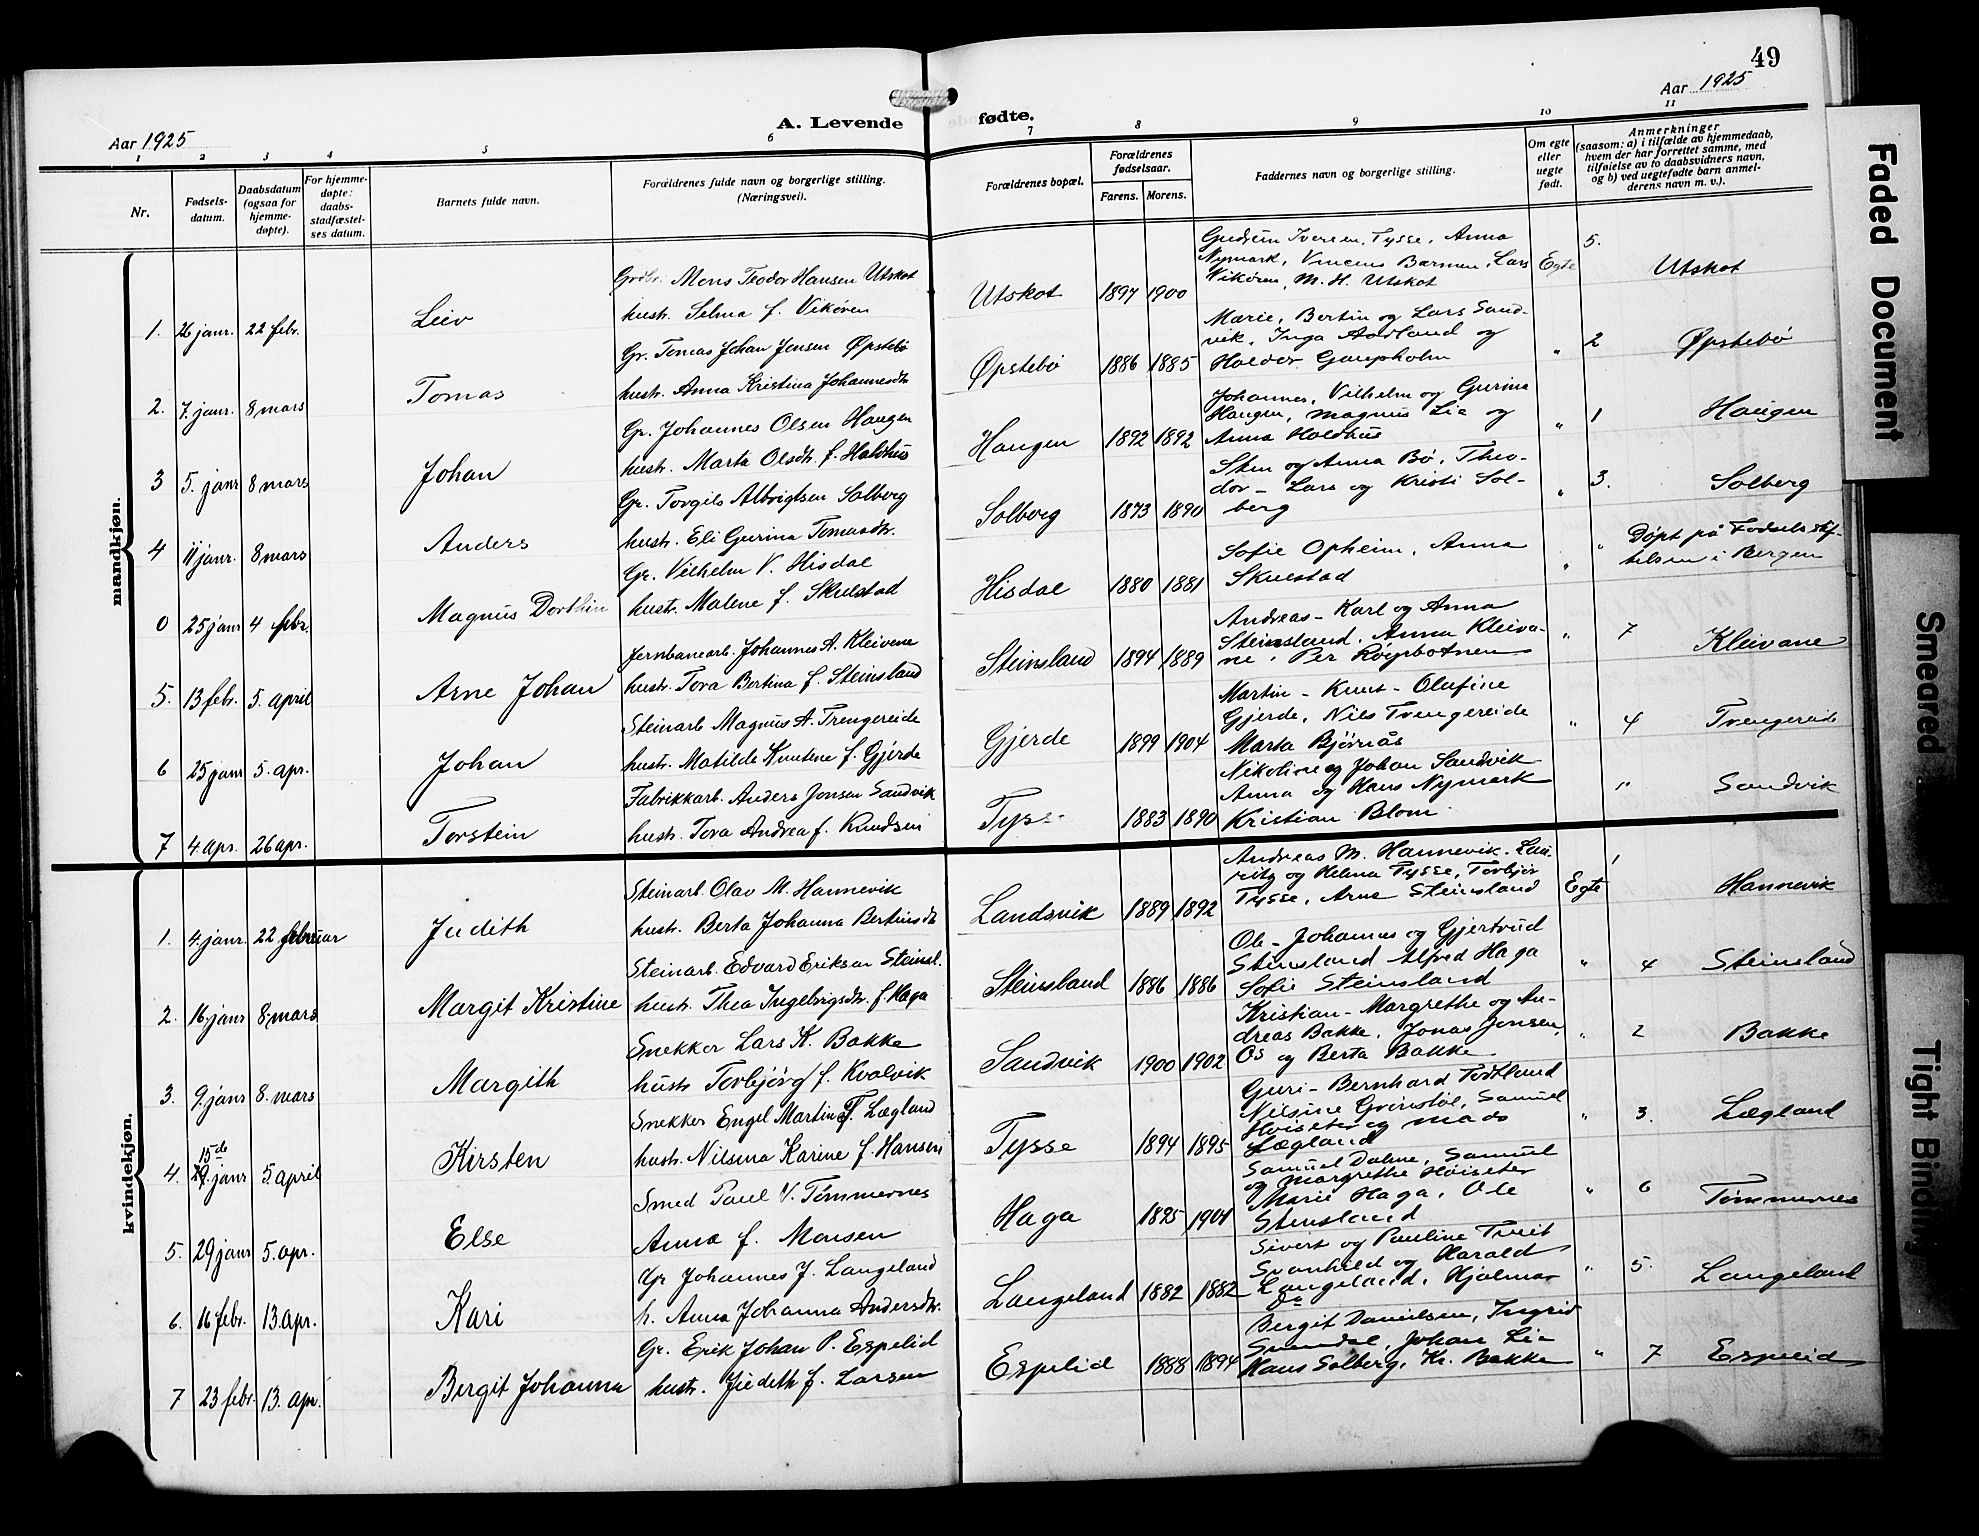 49
Aar 1925
Aar 1925
A. Levende fødte.
1 2 3 4 5 6 7 8 9 10 11
Nr.
Fødsels-
datum.
Daabsdatum
(ogsaa for
hjemme-
døpte).
For hjemme-
døpte:
daabs-
stadfæstel-
ses datum.
Barnets fulde navn.
Forældrenes fulde navn og borgerlige stilling.
(Næringsvei).
Forældrenes bopæl.
Forældrenes
fødselsaar.
Farens. Morens.
Faddernes navn og borgerlige stilling.
Om egte
eller
uegte
født.
Anmerkninger
(saasom: a) i tilfælde av hjemmedaab,
hvem der har forrettet samme, med
tilføielse av to daabsvidners navn,
og b) ved uegtefødte barn anmel-
derens navn m. v.).
mandkjøn.
1. 26 janr. 22 febr. Leiv
Grdbr. Mons Teodor Hansen Utskot
hustr. Selma f. Vikøren
Utskot 1897 1900
Gudrun Iversen, Tysse, Anna
Nymark, Vincens Barmen, Lars
Vikøren, M. H. Utskot
Egte 5. Utskot
2. 7. janr. 8 mars Tomas
Gr. Tomas Johan Jensen Øpstebø
hustr. Anna Kristina Johannesdtr
Øpstebø 1886 1885
Marie, Bertin og Lars Sand-
vik, Inga Aadland og
Holder Gaupholm
" 2 Øpstebø
3 5. janr 8 mars Johan
Gr. Johannes Olsen Haugen
hustr. Marta Olsdtr. f. Holdhus
Haugen 1892 1892
Johannes, Vilhelm og Gurina
Haugen, Magnus Lie og
Anna Holdhus
" 1 Haugen
4 11 janr. 8 mars Anders
Gr. Torgils Albrigtsen Solberg
hustr. Eli Gurina Tomasdtr.
Solberg 1873 1890
Sten og Anna Bø, Theo-
dor - Lars og Kristi Sol-
berg
" 3. Solberg
0 25 janr 4 febr. Magnus Dorthin
Gr. Vilhelm V. Hisdal
hustr. Malene f. Skulstad
Hisdal 1880 1881
Sofie Opheim, Anna
Skulstad
" " Døpt på Fødselsstif-
telsen i Bergen
5. 13 febr. 5. april Arne Johan
Jernbanearb. Johannes A. Kleivene
hustr. Tora Bertina f. Steinsland
Steinsland 1894 1889
Andreas - Karl og Anna
Steinsland, Anna Kleiva-
ne, Per Røynbotnen
" 7 Kleivane
6 25 janr 5. apr. Johan
Steinarb. Magnus A. Trengereide
hustr. Matilde Knutsne f. Gjerde
Gjerde 1899 1904
Martin - Knut - Olufine
Gjerde, Nils Trengereide
Marta Bjørnås
" 4 Trengereid
7 4. apr. 26 apr. Torstein
Fabrikkarb. Anders Jonsen Sandvik
hustr. Tora Andrea f. Knudsen
Tysse 1883 1890
Nikoline og Johan Sandvik
Anna og Hans Nymark
Kristian Blom
" Sandvik
kvindekjøn.
1. 4. janr. 22 februar Judith
Steinarb. Olav M. Hannevik
hustr. Berta Johanna Bertinsdtr
Landsvik 1889 1892
Andreas M. Hannevik. Lau-
ritz og Helena Tysse, Torbjør
Tysse, Arne Steinsland
Egte 1 Hannevik
2. 16. janr 8. mars Margit Kristine
Steinarb. Edvard Eriksen Steinsl.
hustr. Thea Ingebrigsdtr. f. Haga
Steinsland 1886 1886
Ole - Johannes og Gjertrud
Steinsland Alfred Haga
Sofie Steinsland
" 4 Steinsland
3. 9. janr 8. mars Margith
Snekker Lars K. Bakke
hustr Torbjørg f. Kvalvik
Sandvik 1900 1902
Kristian - Margrethe og An-
dreas Bakke, Jonas Jensen,
Os og Berta Bakke
" 2 Bakke
4. 15de 29. janr 5. april Kirsten
Snekker Engel Martin T. Lægland
hustr. Nilsina Karine f. Hansen
Tysse 1894 1895
Guri - Bernhard Todtland
Nilsine Grønstøl, Samuel
Høiseter og Mads
Lægland
" 3. Lægland
5. 29 janr 5. apr. Else
Smed Paul V. Tømmernes
Anna f. Monsen
Haga 1895 1901
Samuel Dahne, Samuel
og Margrethe Høiseter
Marie Haga, Ole
Steinsland
" 6 Tømmernes
6. 16 febr. 13. apr. Kari
Gr. Johannes J. Langeland
h. Anna Johanna Andersdtr.
Langeland 1882 1882
Sivert og Pauline Tveit
Svanhild og Harald
Langeland, Hjalmar
Do
" 5. Langeland
7 23 febr. 13. apr. Bergit Johanna
Gr. Erik Johan P. Espelid
hustr. Judith f. Larsen
Espelid 1888 1894
Bergit Danielsen, Ingrid
Johan Lie
Hans Solberg, Kr. Bakke
" 7 Espelid
Faded Document
Smeared
Tight Binding